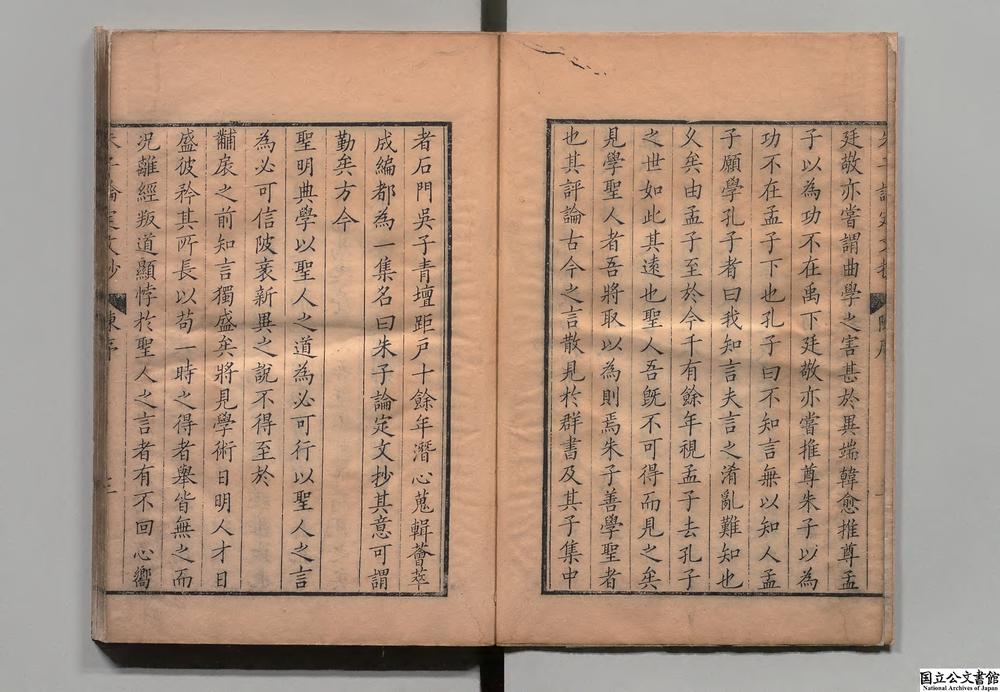 廷敬亦嘗謂曲學之害甚於異端韓愈推尊孟
子以為功不在禹下廷敬亦嘗推尊朱子以為
功不在孟子下也孔子曰不知言無以知人孟
子願學孔子者曰我知言夫言之淆亂難知也
乆矣由孟子至於今千有餘年視孟子去孔子
之世如此其遠也聖人吾旣不可得而見之矣
見學聖人者吾將取以為則焉朱子善學聖者
也其評論古今之言散見於群書及其子集中
者石門吳子青壇距戸十餘年潛心蒐輯薈萃
成編都為一集名曰朱子論定文抄其意可謂
勤矣方今
聖明典學以聖人之道為必可行以聖人之言
為必可信陂衺新異之說不得至於
黼扆之前知言獨盛矣將見學術日明人才日
盛彼矜其所長以苟一時之得者舉皆無之而
況離經叛道顯悖於聖人之言者有不回心嚮
朱子論定文抄 陳序 二
国立公文書館
National Archives of Japan